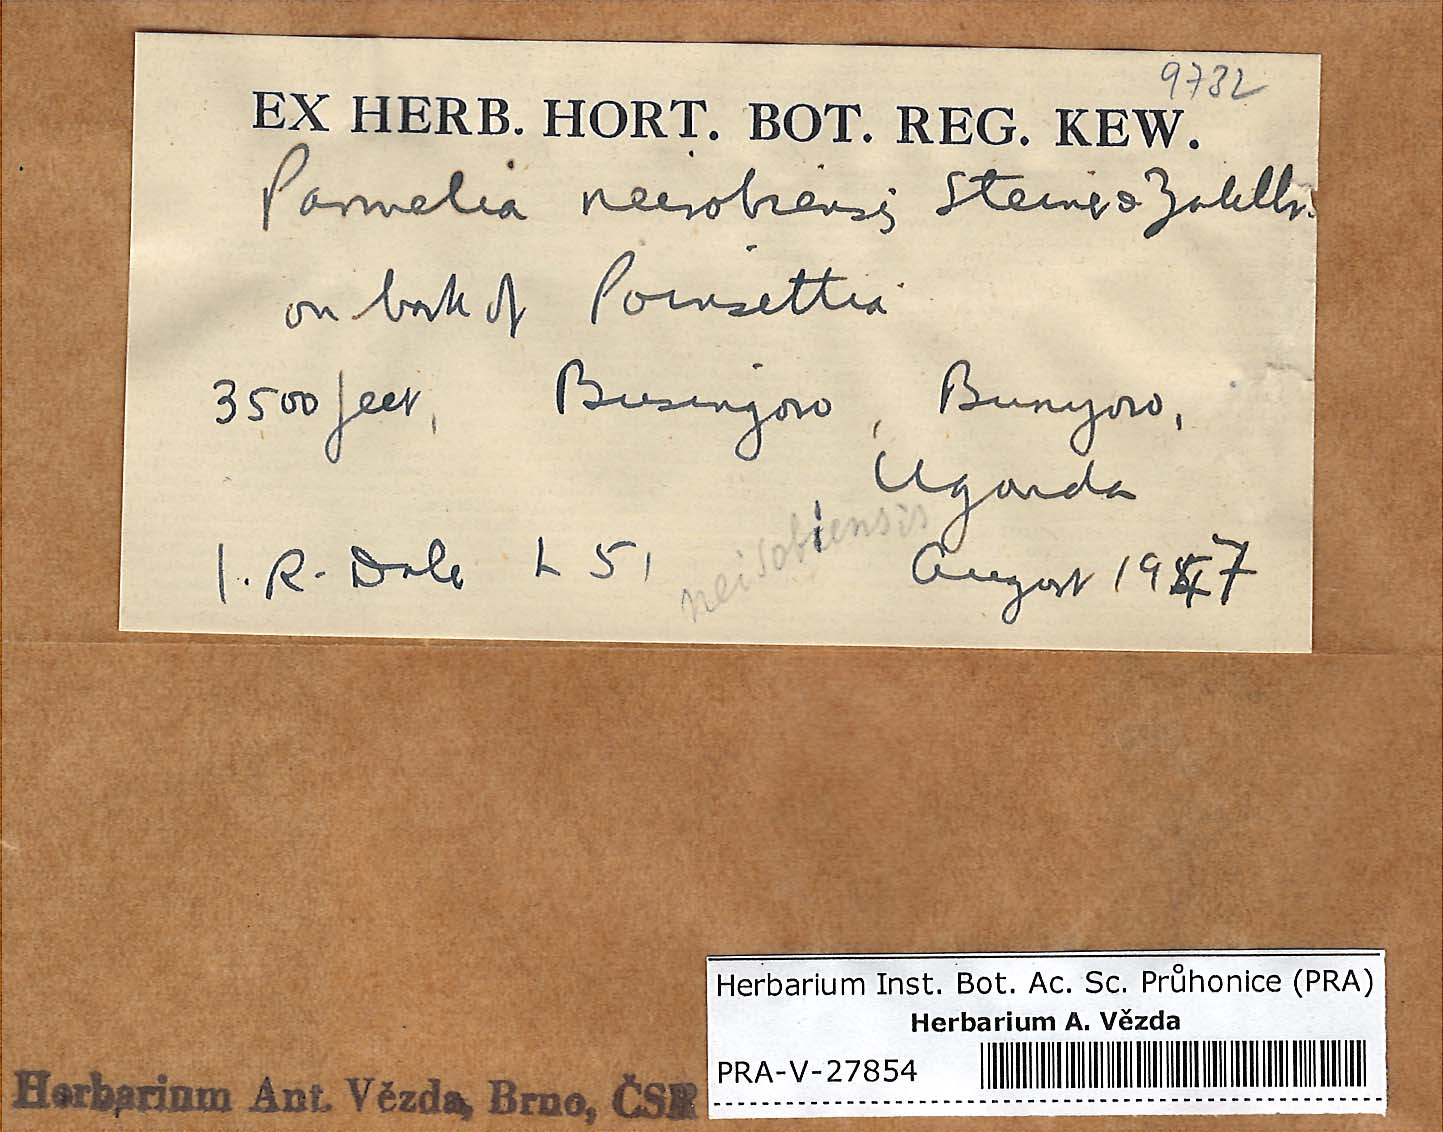 9732
EX HERB. HORT. BOT. REG. KEW.
Parmelia neisobiensis Steiner & Zahlbr.
on bark of Poinsettia
3500 feet, Busingoro, Bunyoro,
Uganda
I. R. Dale L 51 August 1947
neisobiensis
Herbarium Inst. Bot. Ac. Sc. Průhonice (PRA)
Herbarium A. Vězda
PRA-V-27854
Herbarium Ant. Vězda, Brno, ČSR